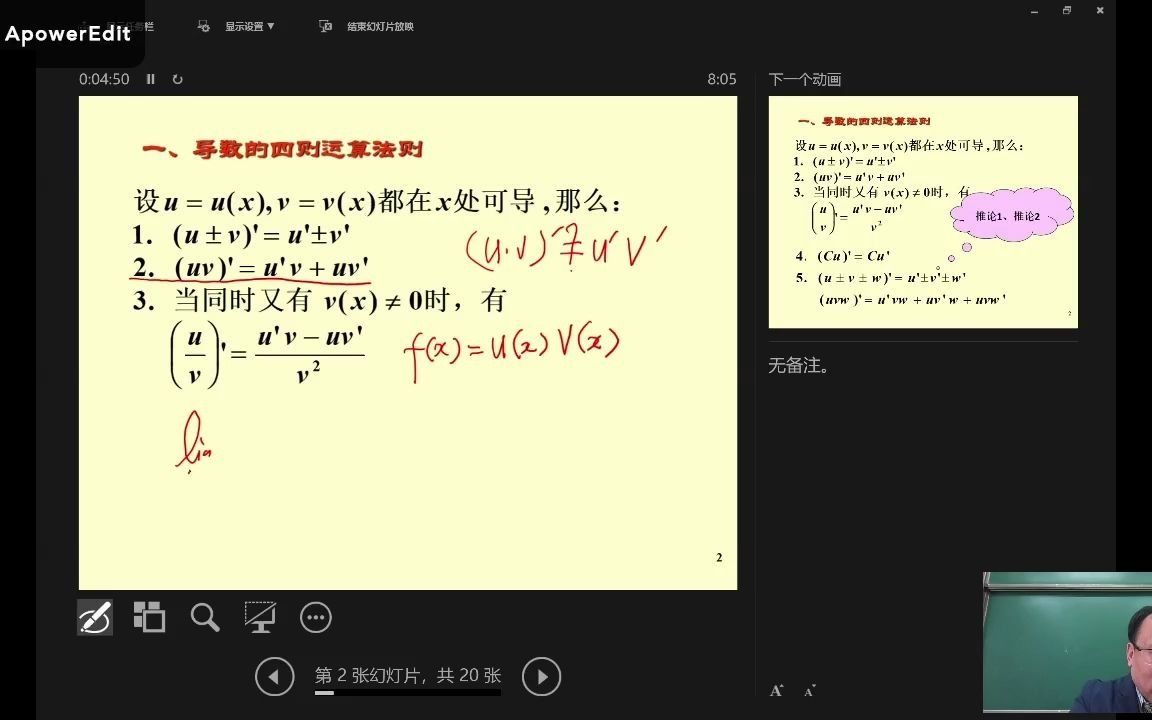 ApowerEdit
栏
显示设置 ▼
结束幻灯片放映
0:04:50
8:05
下一个动画
一、导数的四则运算法则
设u = u(x), v = v(x)都在x处可导,那么:
1. (u ± v)' = u'±v'
(u·v)' ≠ u'v'
2. (uv)' = u'v + uv'
3. 当同时又有 v(x) ≠ 0时, 有
(u/v)' = (u'v − uv')/v²
f(x) = u(x) v(x)
2
一、导数的四则运算法则
设u = u(x), v = v(x)都在x处可导,那么:
1. (u ± v)' = u'±v'
2. (uv)' = u'v + uv'
3. 当同时又有 v(x) ≠ 0时, 有
(u/v)' = (u'v − uv')/v²
推论1、推论2
4. (Cu)' = Cu'
5. (u ± v ± w)' = u'±v'±w'
(uvw)' = u'vw + uv'w + uvw'
2
无备注。
第 2 张幻灯片，共 20 张
A A